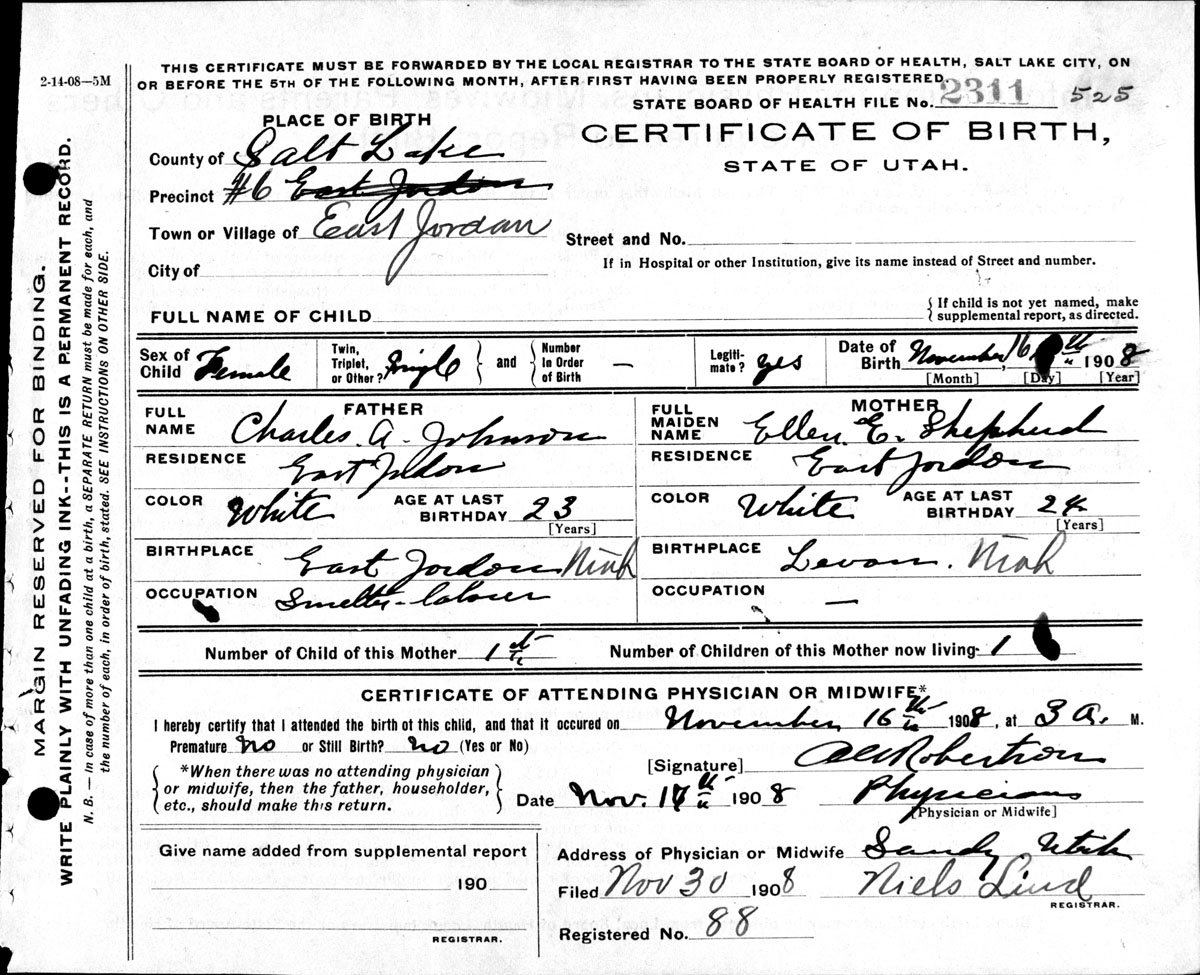 2-14-08—5M
THIS CERTIFICATE MUST BE FORWARDED BY THE LOCAL REGISTRAR TO THE STATE BOARD OF HEALTH, SALT LAKE CITY, ON
OR BEFORE THE 5TH OF THE FOLLOWING MONTH, AFTER FIRST HAVING BEEN PROPERLY REGISTERED.
STATE BOARD OF HEALTH FILE No. 2311 525
PLACE OF BIRTH
CERTIFICATE OF BIRTH,
STATE OF UTAH.
County of Salt Lake
Precinct #6 East Jordon
Town or Village of East Jordan
Street and No.
City of
If in Hospital or other Institution, give its name instead of Street and number.
FULL NAME OF CHILD
{If child is not yet named, make
supplemental report, as directed.
Sex of Child Female
Twin, Triplet, or Other? Single } and { Number In Order of Birth —
Legiti- mate? yes
Date of Birth November, 16 th 1908
[Month] [Day] [Year]
FATHER
FULL NAME Charles. A. Johnson
RESIDENCE East Jordon
COLOR White AGE AT LAST BIRTHDAY 23
[Years]
BIRTHPLACE East Jordon Utah
OCCUPATION Smelter-laborer
MOTHER
FULL MAIDEN NAME Ellen. E. Shepherd
RESIDENCE East Jordon
COLOR White AGE AT LAST BIRTHDAY 24
[Years]
BIRTHPLACE Levan. Utah
OCCUPATION —
Number of Child of this Mother 1 st
Number of Children of this Mother now living- 1
CERTIFICATE OF ATTENDING PHYSICIAN OR MIDWIFE*
I hereby certify that I attended the birth of this child, and that it occured on November, 16 th 1908, at 3 A. M.
Premature no or Still Birth? no (Yes or No)
{ *When there was no attending physician
or midwife, then the father, householder,
etc., should make this return. }
[Signature] Robertson
Date Nov. th 1908 Physician
[Physician or Midwife]
Give name added from supplemental report
190
REGISTRAR.
Address of Physician or Midwife Sandy Utah
Filed Nov 30 1908 Niels Lind
REGISTRAR.
Registered No. 88
MARGIN RESERVED FOR BINDING.
WRITE PLAINLY WITH UNFADING INK--THIS IS A PERMANENT RECORD.
N. B. — In case of more than one child at a birth, a SEPARATE RETURN must be made for each, and
the number of each, in order of birth, stated. SEE INSTRUCTIONS ON OTHER SIDE.